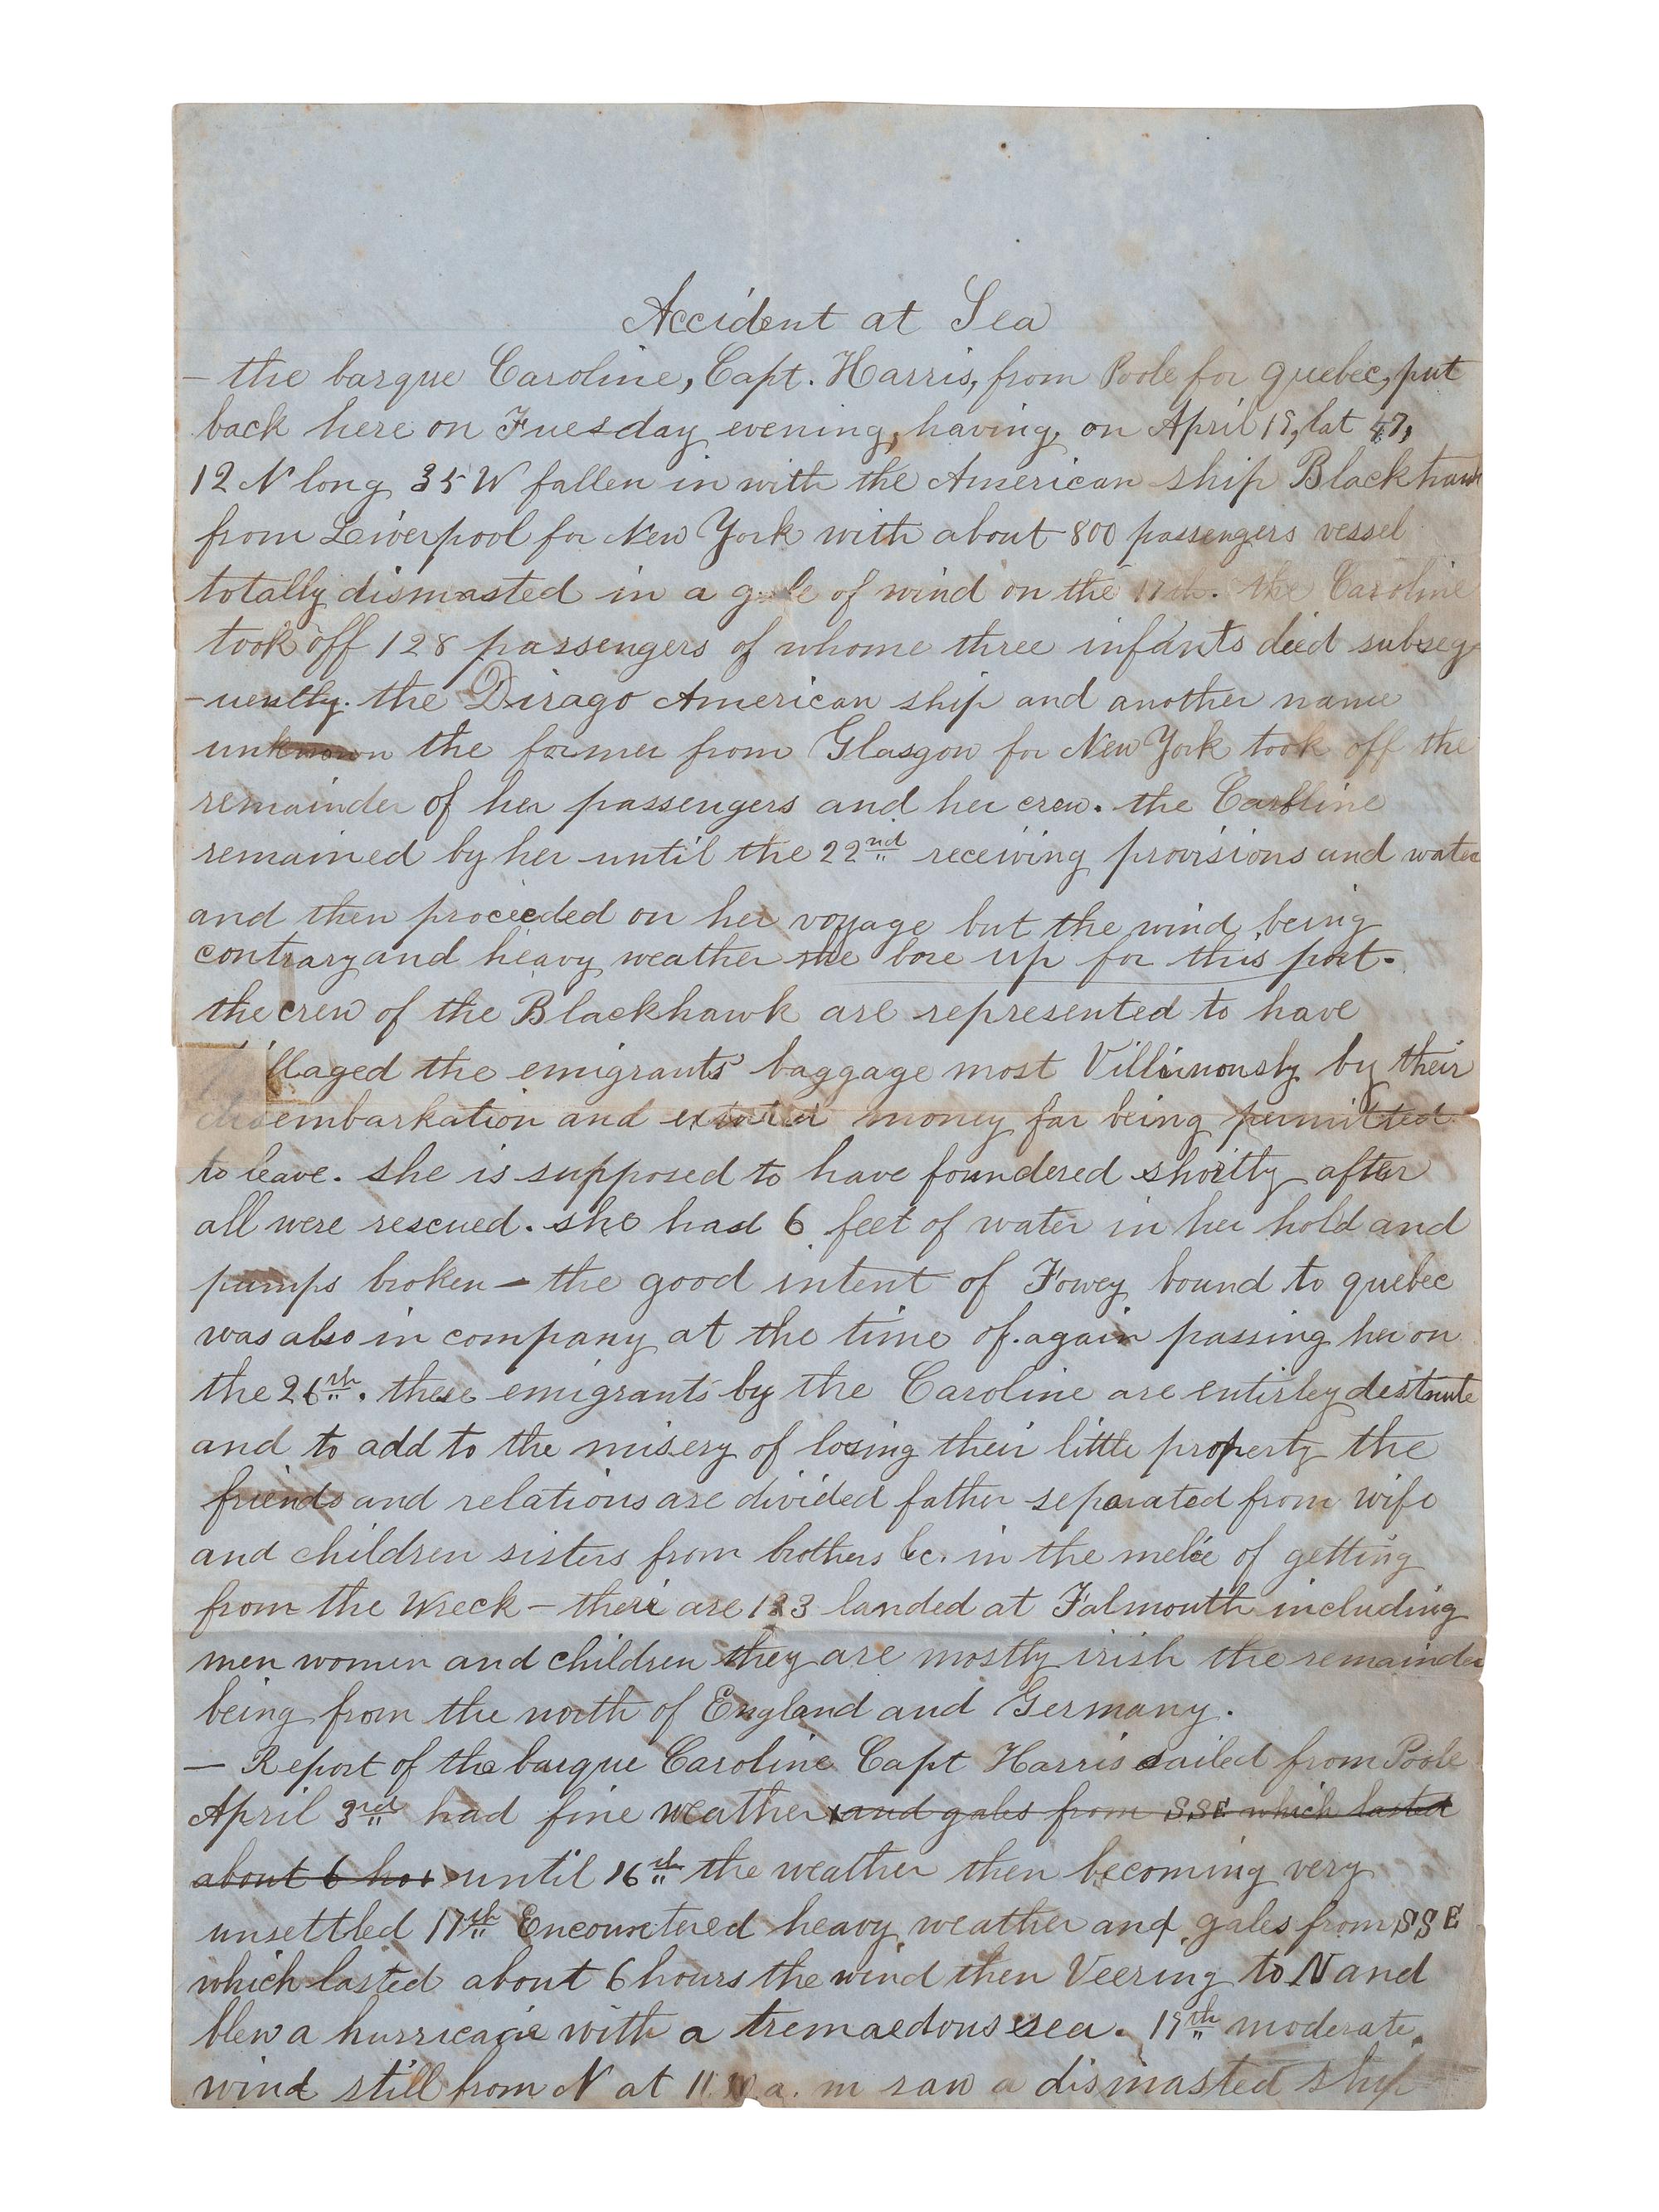 Accident at Sea
— the barque Caroline, Capt. Harris, from Poole for quebec, put
back here on Tuesday evening, having, on April 19, lat 47,
12 N long 35 W fallen in with the American ship Blackhawk
from Liverpool for New York with about 800 passengers vessel
totally dismasted in a gale of wind on the 17th. the Caroline
took off 128 passengers of whome three infants died subseq-
-uently. the Dirago American ship and another name
unknown the former from Glasgow for New York took off the
remainder of her passengers and her crew. the Caroline
remained by her until the 22nd receiving provisions and water
and then proceeded on her voyage but the wind being
contrary and heavy weather she bore up for this port.
the crew of the Blackhawk are represented to have
llaged the emigrants' baggage most Villianously by their
disembarkation and extorted money for being permitted
to leave. she is supposed to have foundered shortly after
all were rescued. she had 6 feet of water in her hold and
pumps broken — the good intent of Fowey bound to quebec
was also in company at the time of. again passing her on
the 26th. these emigrants by the Caroline are entirley destitute
and to add to the misery of losing their little property the
friends and relations are divided father separated from wife
and children sisters from brothers &c. in the melée of getting
from the Wreck — there are 123 landed at Falmouth including
men women and children they are mostly irish the remainder
being from the north of England and Germany.
— Report of the barque Caroline Capt Harris sailed from Poole
April 3rd had fine weather and gales from SSE which lasted
about 6 hor until 16th the weather then becoming very
unsettled 17th Encountered heavy weather and gales from SSE
which lasted about 6 hours the wind then Veering to N and
blew a hurricane with a tremaedous sea. 19th moderate,
wind still from N at 11 a. m saw a dismasted ship